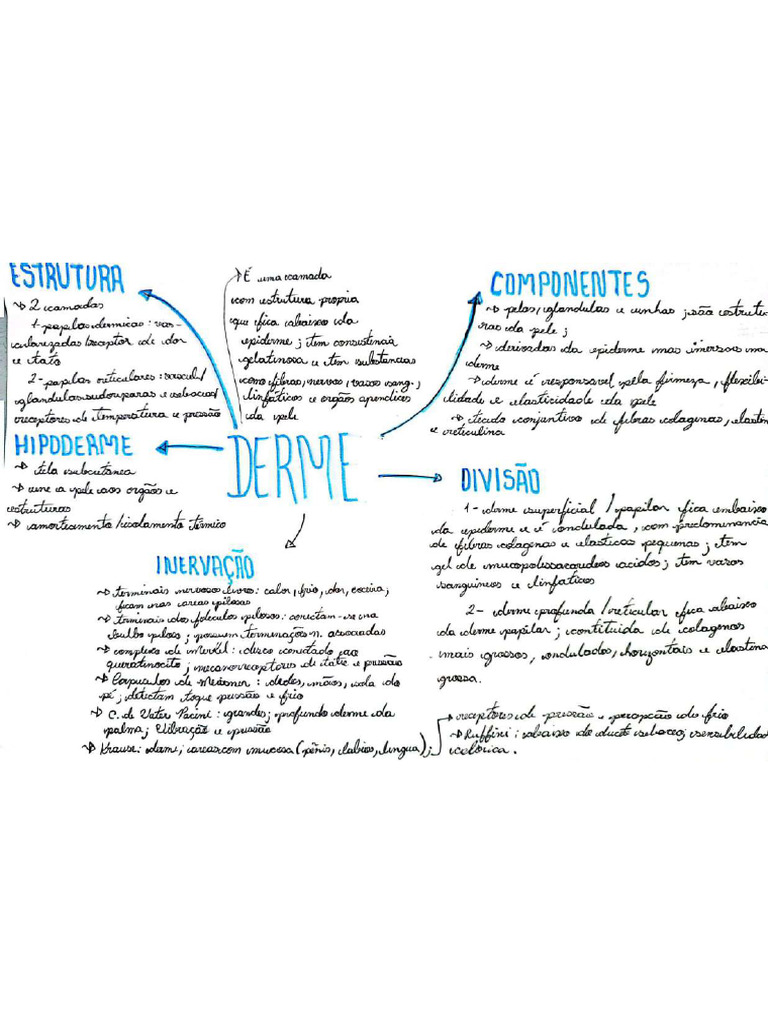 ESTRUTURA
→ 2 camadas
1- papilas dermicas: vas-
cularizadas/receptor de dor
e tato
2- papilas reticulares: vascul/
glandulas sudoriparas e sebaceas/
receptores de temperatura e pressão
HIPODERME
→ tela subcutanea
→ une a pele aos orgãos e
estruturas
→ amortecimento/isolamento térmico
→ É uma camada
com estrutura propria
que fica abaixo da
epiderme; tem consistencia
gelatinosa e tem substancias
como fibras, nervos, vasos sang.,
linfaticos e orgãos apendices
da pele
DERME
COMPONENTES
→ pelos, glandulas e unhas; são estrutu-
ras da pele;
→ derivadas da epiderme mas imersas na
derme
→ derme é responsavel pela firmeza, flexibi-
lidade e elasticidade da pele
→ tecido conjuntivo de fibras colagenas, elastina
e reticulina
DIVISÃO
1- derme superficial / papilar fica embaixo
da epiderme e é ondulada, com predominancia
de fibras colagenas e elasticas pequenas; tem
gel de mucopolissacarideos acidos; tem vasos
sanguineos e linfaticos
2- derme profunda / reticular fica abaixo
da derme papilar; contituida de colagenos
mais grossos, ondulados, horizontais e elastina
grossa.
INERVAÇÃO
→ terminais nervosos livres: calor, frio, dor, coceira;
ficam nas areas pilosas
→ terminais dos foliculos pilosos: conectam-se na
bulbo piloso; possuem terminações n. associadas
→ complexo de Merkel: disco conectado ao
queratinocito; mecanorreceptores de tátil e pressão
→ Corpusculos de Meissner: dedos, mãos, sola do
pé; detectam toque pressão e frio
→ C. de Vater Pacini: grandes; profundo derme da
palma; Vibração e pressão
→ Krause: derme; areas com mucosa (pênis, labios, lingua);
→ receptores de pressão e percepção do frio
→ Ruffini: abaixo do ducto sebaceo; sensibilidade
calorica.